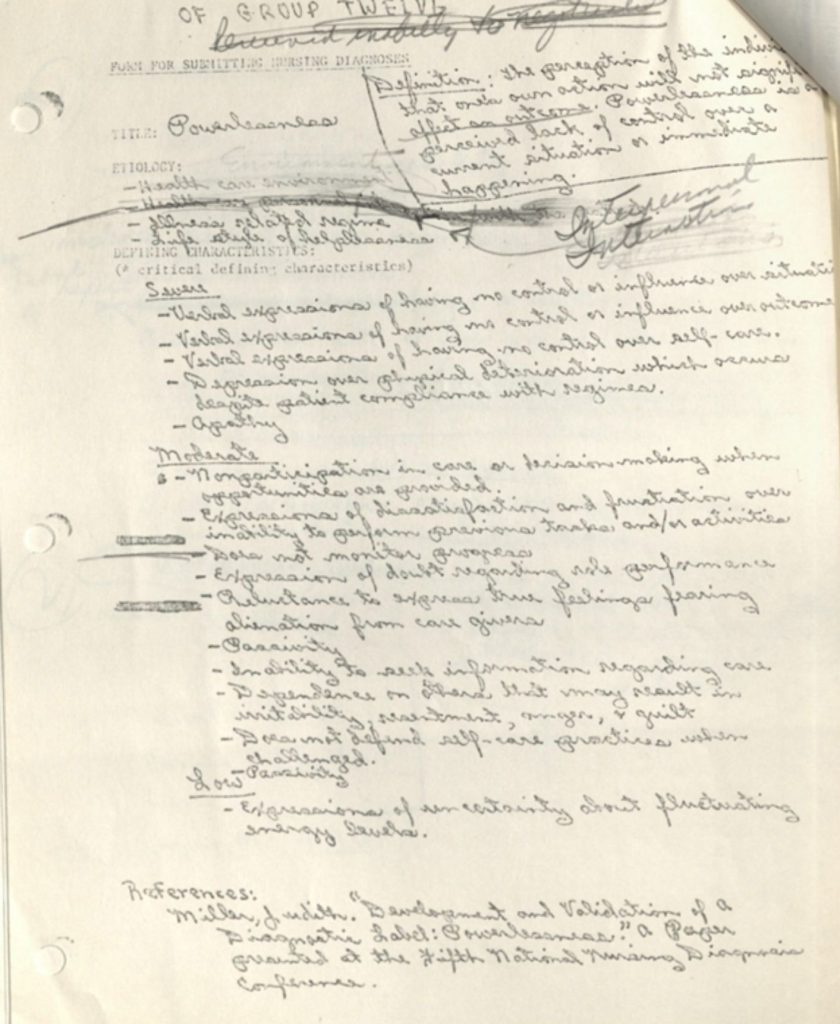 OF GROUP TWELVE
Perceived inability to negotiate
FORM FOR SUBMITTING NURSING DIAGNOSES
Definition: the perception of the individ
that one's own action will not signifi
affect an outcome. Powerlessness is a
perceived lack of control over a
current situation or immediate
happening.
TITLE: Powerlessness
ETIOLOGY:
- Health care environment
- Health care personnel
- Illness related regime
- Life style of helplessness
Interpersonal
Interaction
DEFINING CHARACTERISTICS:
(* critical defining characteristics)
Severe
- Verbal expressions of having no control or influence over situati
- Verbal expressions of having no control or influence over outcome
- Verbal expressions of having no control over self-care.
- Depression over physical deterioration which occurs
despite patient compliance with regimes.
- Apathy
Moderate
- Nonparticipation in care or decision-making when
opportunities are provided.
- Expressions of dissatisfaction and frustration over
inability to perform previous tasks and/or activities
- Does not monitor progress
- Expression of doubt regarding role performance
- Reluctance to express true feelings fearing
alienation from care givers
- Passivity
- Inability to seek information regarding care
- Dependence on others that may result in
irritability, resentment, anger, & guilt
- Does not defend self-care practices when
challenged.
Low - Passivity
- Expressions of uncertainty about fluctuating
energy levels.
References:
Miller, Judith. "Development and Validation of a
Diagnostic Label: Powerlessness." A Paper
presented at the Fifth National Nursing Diagnosis
Conference.